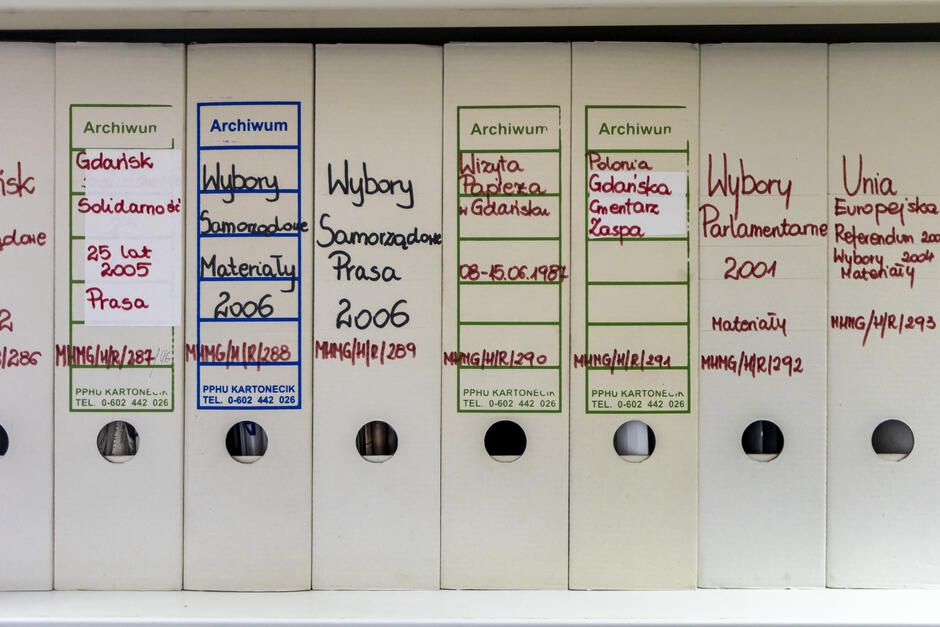 Archiwum
Gdańsk
Solidarność
25 lat
2005
Prasa
MHMG/H/R/287
PPHU KARTONECIK
TEL. 0-602 442 026
Archiwum
Wybory
Samorządowe
Materiały
2006
MHMG/H/R/288
PPHU KARTONECIK
TEL. 0-602 442 026
Wybory
Samorządowe
Prasa
2006
MHMG/H/R/289
Archiwum
Wizyta
Papieża
w Gdańsku
08-15.06.1987
MHMG/H/R/290
PPHU KARTONECIK
TEL. 0-602 442 026
Archiwum
Polonia
Gdańska
Cmentarz
Zaspa
MHMG/H/R/291
PPHU KARTONECIK
TEL. 0-602 442 026
Wybory
Parlamentarne
2001
Materiały
MHMG/H/R/292
Unia
Europejska
Referendum
Wybory 2004
Materiały
MHMG/H/R/293